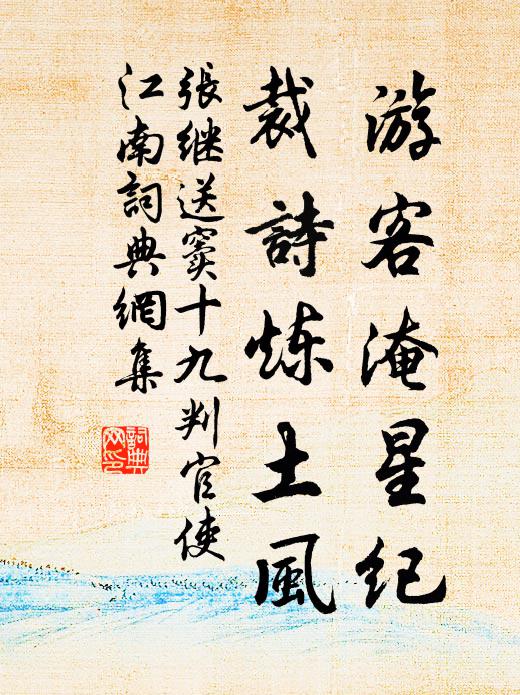 游客淹星纪
裁詩炼土風
張继送窦十九判官使
江南詞典網集
詞典
网印